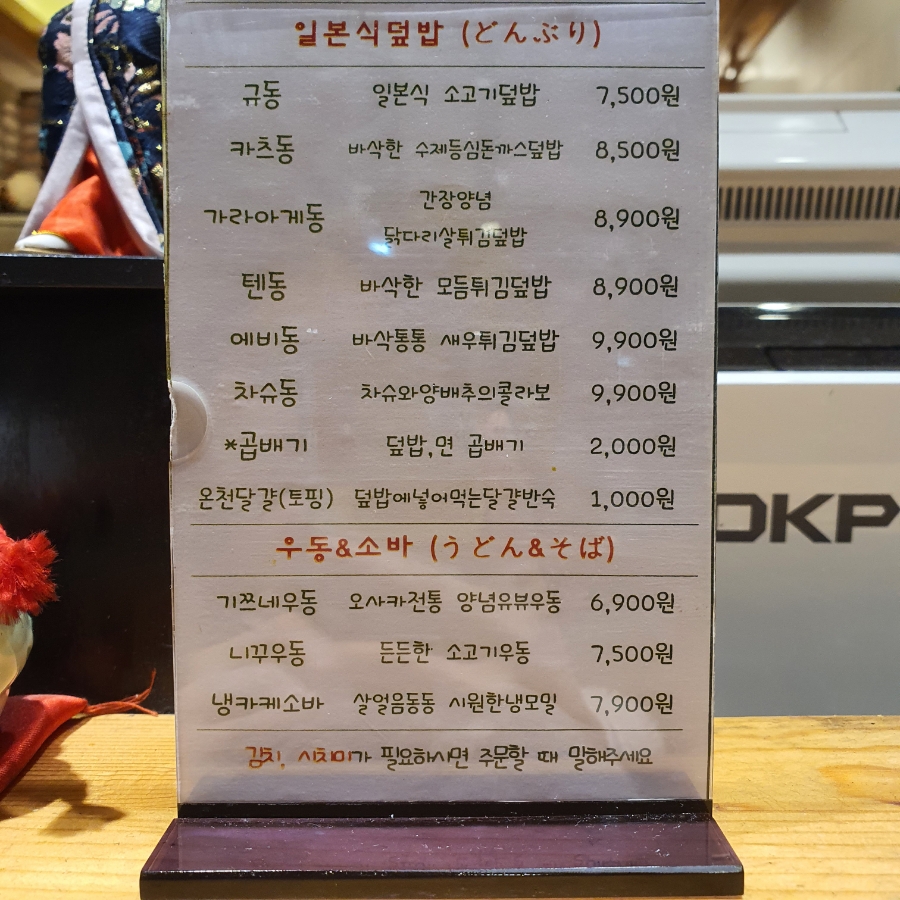 일본식덮밥 (どんぶり)
규동 일본식 소고기덮밥 7,500원
카츠동 바삭한 수제등심돈까스덮밥 8,500원
가라아게동 간장양념 닭다리살튀김덮밥 8,900원
텐동 바삭한 모듬튀김덮밥 8,900원
에비동 바삭통통 새우튀김덮밥 9,900원
차슈동 차슈와양배추의콜라보 9,900원
*곱배기 덮밥,면 곱배기 2,000원
온천달걀(토핑) 덮밥에넣어먹는달걀반숙 1,000원
우동&소바 (うどん&そば)
기쯔네우동 오사카전통 양념유뷰우동 6,900원
니꾸우동 든든한 소고기우동 7,500원
냉카케소바 살얼음동동 시원한냉모밀 7,900원
김치, 시치미가 필요하시면 주문할 때 말해주세요
OKP